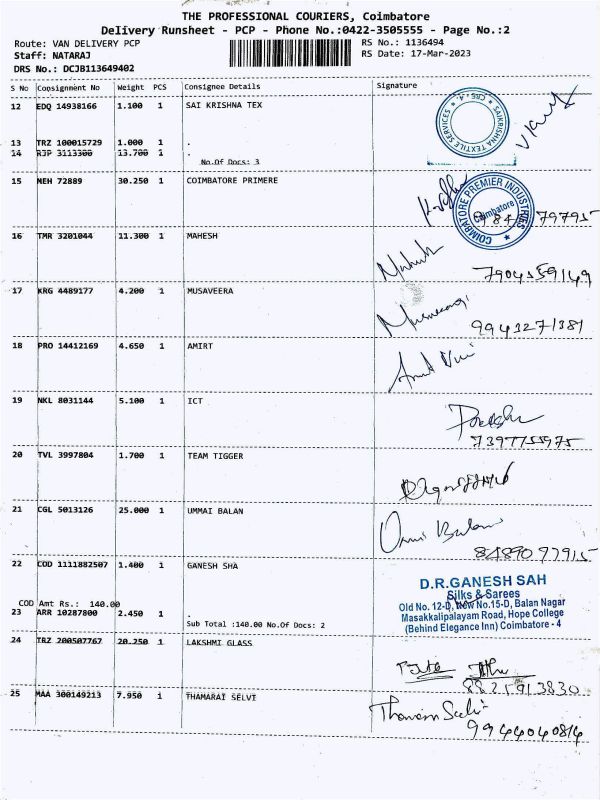 THE PROFESSIONAL COURIERS, Coimbatore
Delivery Runsheet - PCP - Phone No.:0422-3505555 - Page No.:2
Route: VAN DELIVERY PCP RS No.: 1136494
Staff: NATARAJ RS Date: 17-Mar-2023
DRS No.: DCJB113649402
S No Consignment No Weight PCS Consignee Details Signature
12 EDQ 14938166 1.100 1 SAI KRISHNA TEX
SAIKRISHNA TEXTILE SERVICES
13 TRZ 100015729 1.000 1 .
14 RJP 3113300 13.700 1 .
No.Of Docs: 3
15 MEH 72889 30.250 1 COIMBATORE PRIMERE
COIMBATORE PREMIER INDUSTRIES
Coimbatore
797915
16 TMR 3201044 11.300 1 MAHESH
7904559149
17 KRG 4489177 4.200 1 MUSAVEERA
9943271381
18 PRO 14412169 4.650 1 AMIRT
19 NKL 8031144 5.100 1 ICT
7397755975
20 TVL 3997804 1.700 1 TEAM TIGGER
21 CGL 5013126 25.000 1 UMMAI BALAN
Ummi Balan
8489097915
22 COD 1111882507 1.400 1 GANESH SHA
D.R.GANESH SAH
Silks & Sarees
Old No. 12-D, New No.15-D, Balan Nagar
Masakkalipalayam Road, Hope College
(Behind Elegance Inn) Coimbatore - 4
COD Amt Rs.: 140.00
23 ARR 10287800 2.450 1 .
Sub Total :140.00 No.Of Docs: 2
24 TRZ 200507767 20.250 1 LAKSHMI GLASS
8825913830
25 MAA 300149213 7.950 1 THAMARAI SELVI
Thamarai Selvi
9944040814